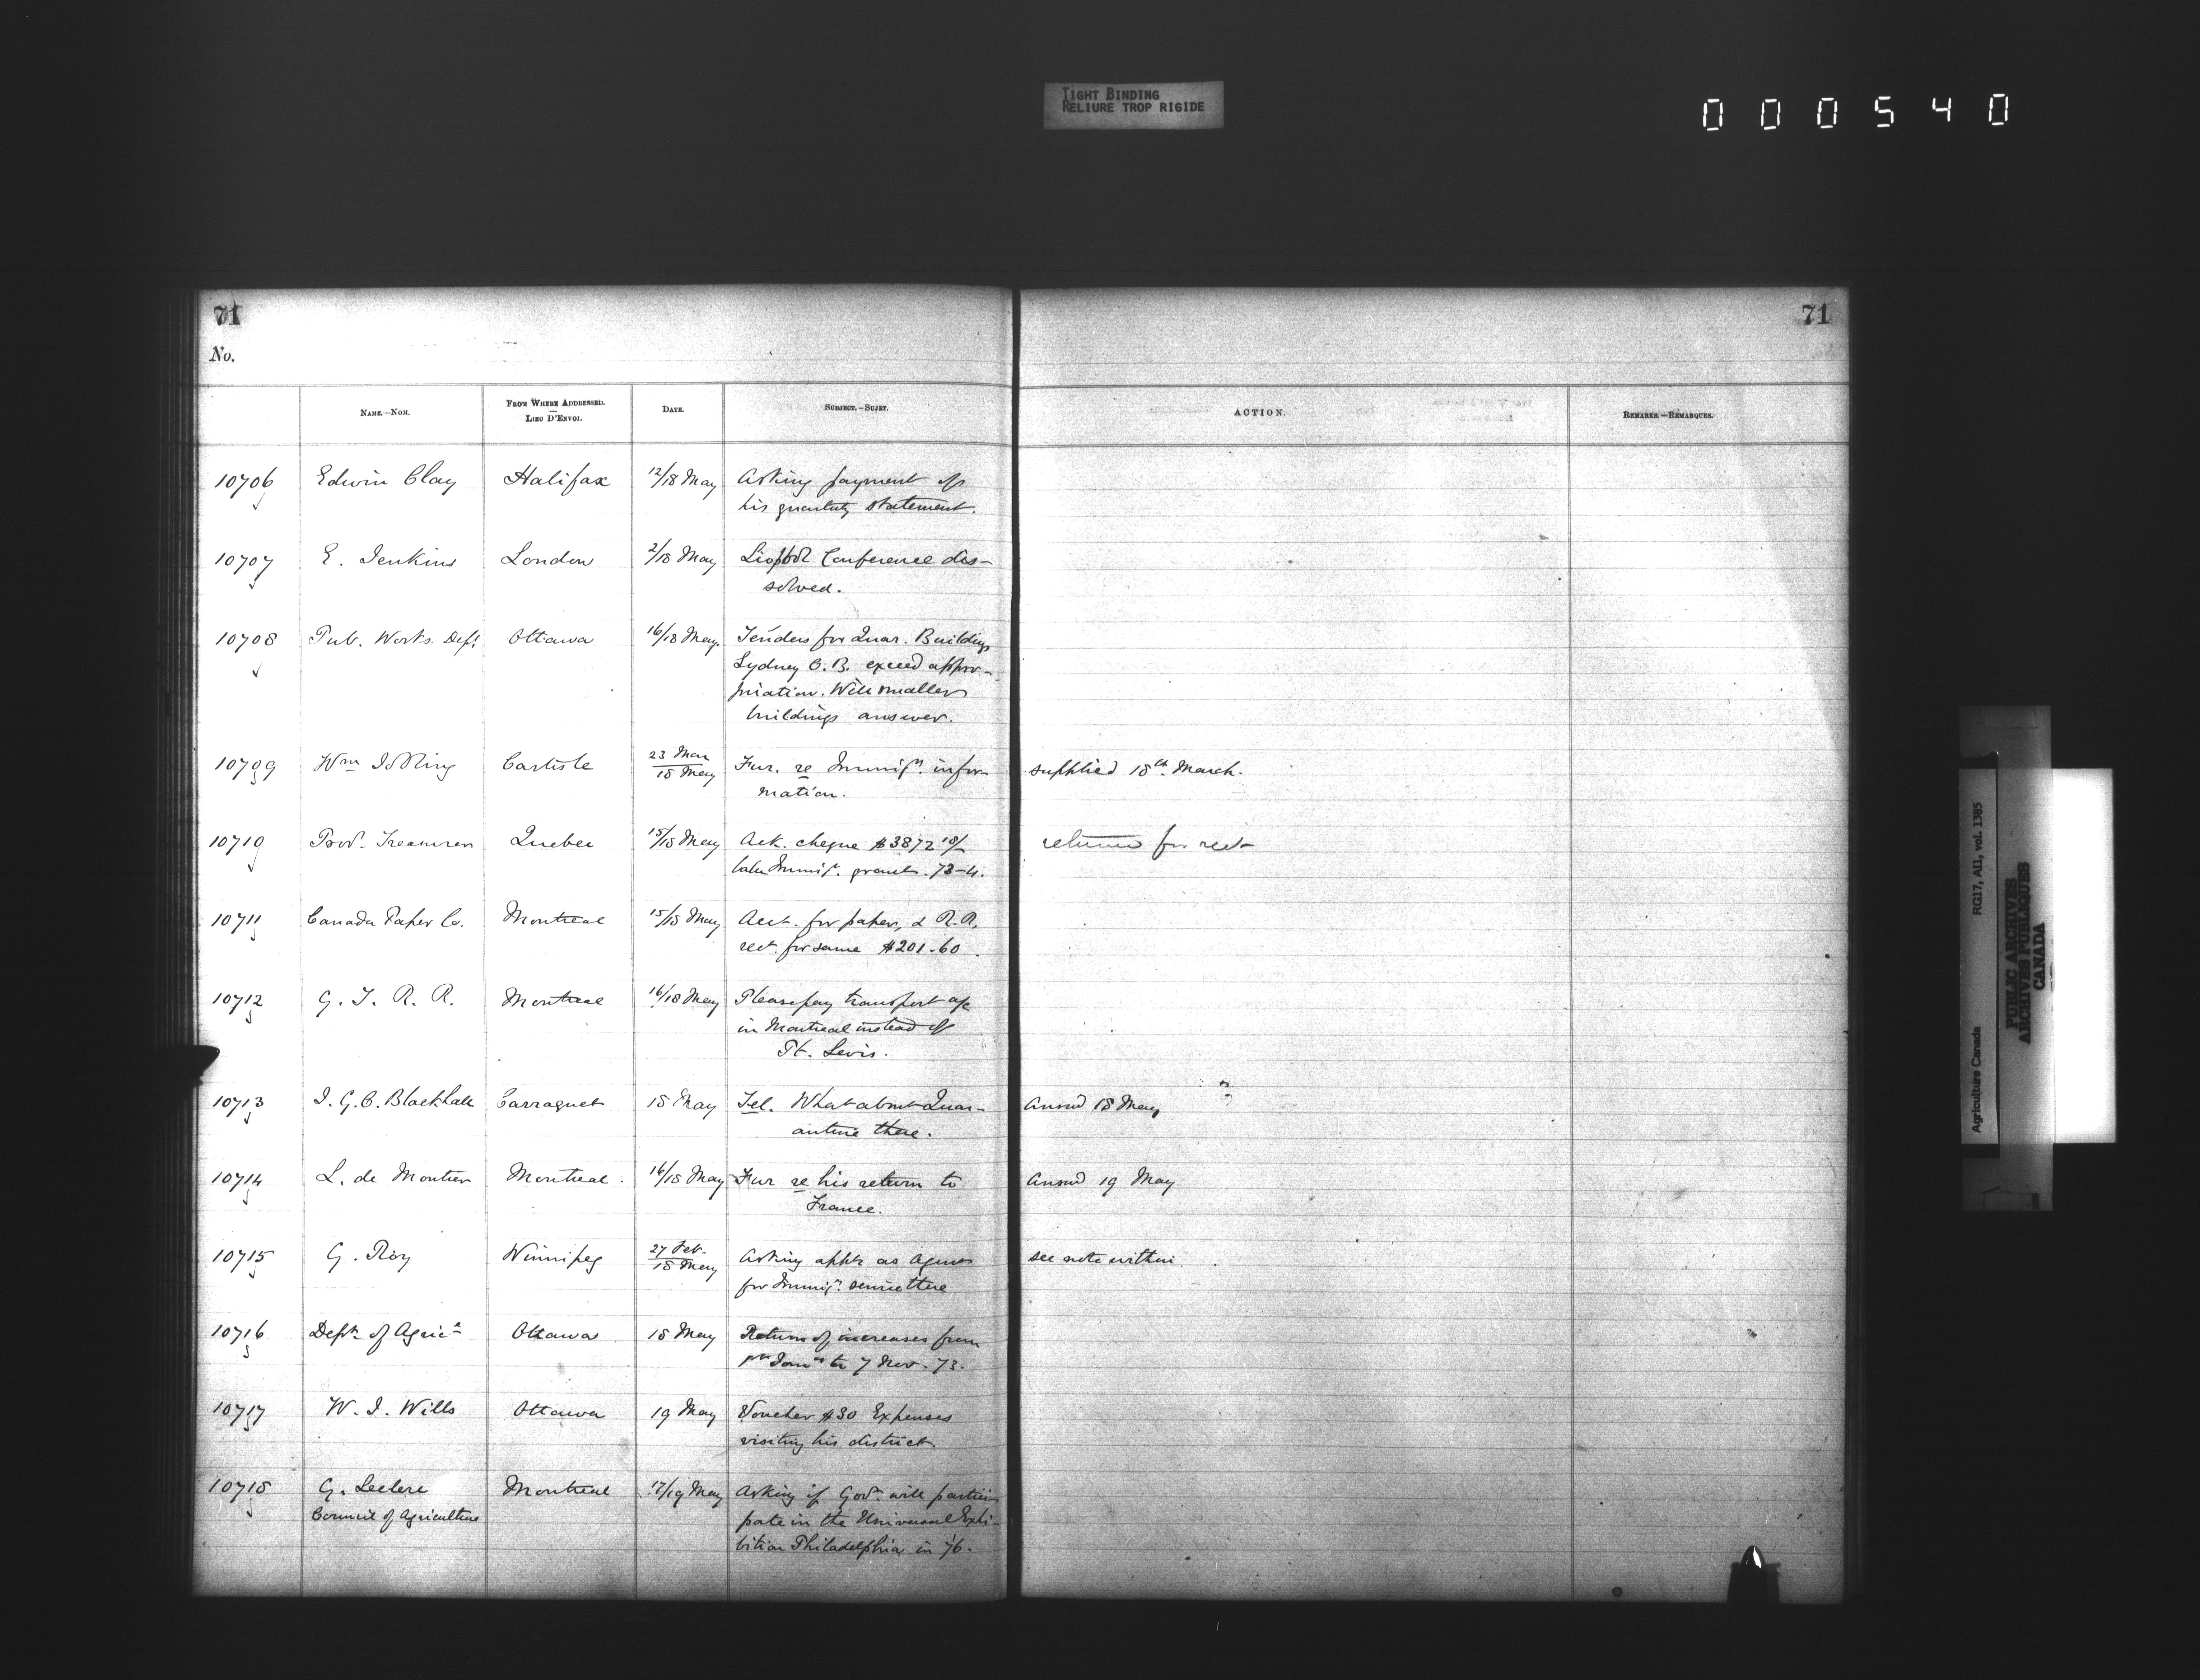 TIGHT BINDING
RELIURE TROP RIGIDE
000540
71
71
No.
NAME.—NOM.
FROM WHERE ADDRESSED.
—
LIEU D'ENVOI.
DATE.
SUBJECT.—SUJET.
ACTION.
REMARKS.—REMARQUES.
10706 Edwin Clay Halifax 12/18 May Asking payment of
his statement.
10707 E. Jenkins London 2/18 May Conference dis-
solved.
10708 Pub. Works Dept. Ottawa 16/18 May. Tenders for Quar. Buildings
Sydney C.B. exceed appro-
priation. Will smaller
buildings answer.
10709 Wm Carlisle 23 Mar
18 May Fur. re Immign. infor-
mation. supplied 18th March.
10710 Provl. Treasurer Quebec 15/18 May Ack. cheque $3872
Immigt. grant. 73-4. return for rect
10711 Canada Paper Co. Montreal 15/18 May Acct. for paper, & R.R.
rect. for same $201.60.
10712 G. T. R. R. Montreal 16/18 May Please pay transport a/c
in Montreal instead of
Pt. Levis.
10713 J. G. C. Blackhall Carraquet 18 May Tel. What about Quar-
antine there. Answd 18 May
10714 L. de Montreal. 16/18 May Fur re his return to
France. Answd 19 May
10715 G. Roy Winnipeg 27 Feb.
18 May Asking appt. as Agent
for Immign. service there see note within
10716 Dept. of Agric. Ottawa 18 May Return of increases from
to 7 Nov. 73.
10717 W. J. Wills Ottawa 19 May Voucher $30 Expenses
visiting his district.
10718 G. Leclere Montreal 17/19 May Asking if Govt. will partici-
Council of Agriculture pate in the Universal Exhi-
bition Philadelphia in '76.
Agriculture Canada RG17, AII, vol. 1385
PUBLIC ARCHIVES
ARCHIVES PUBLIQUES
CANADA